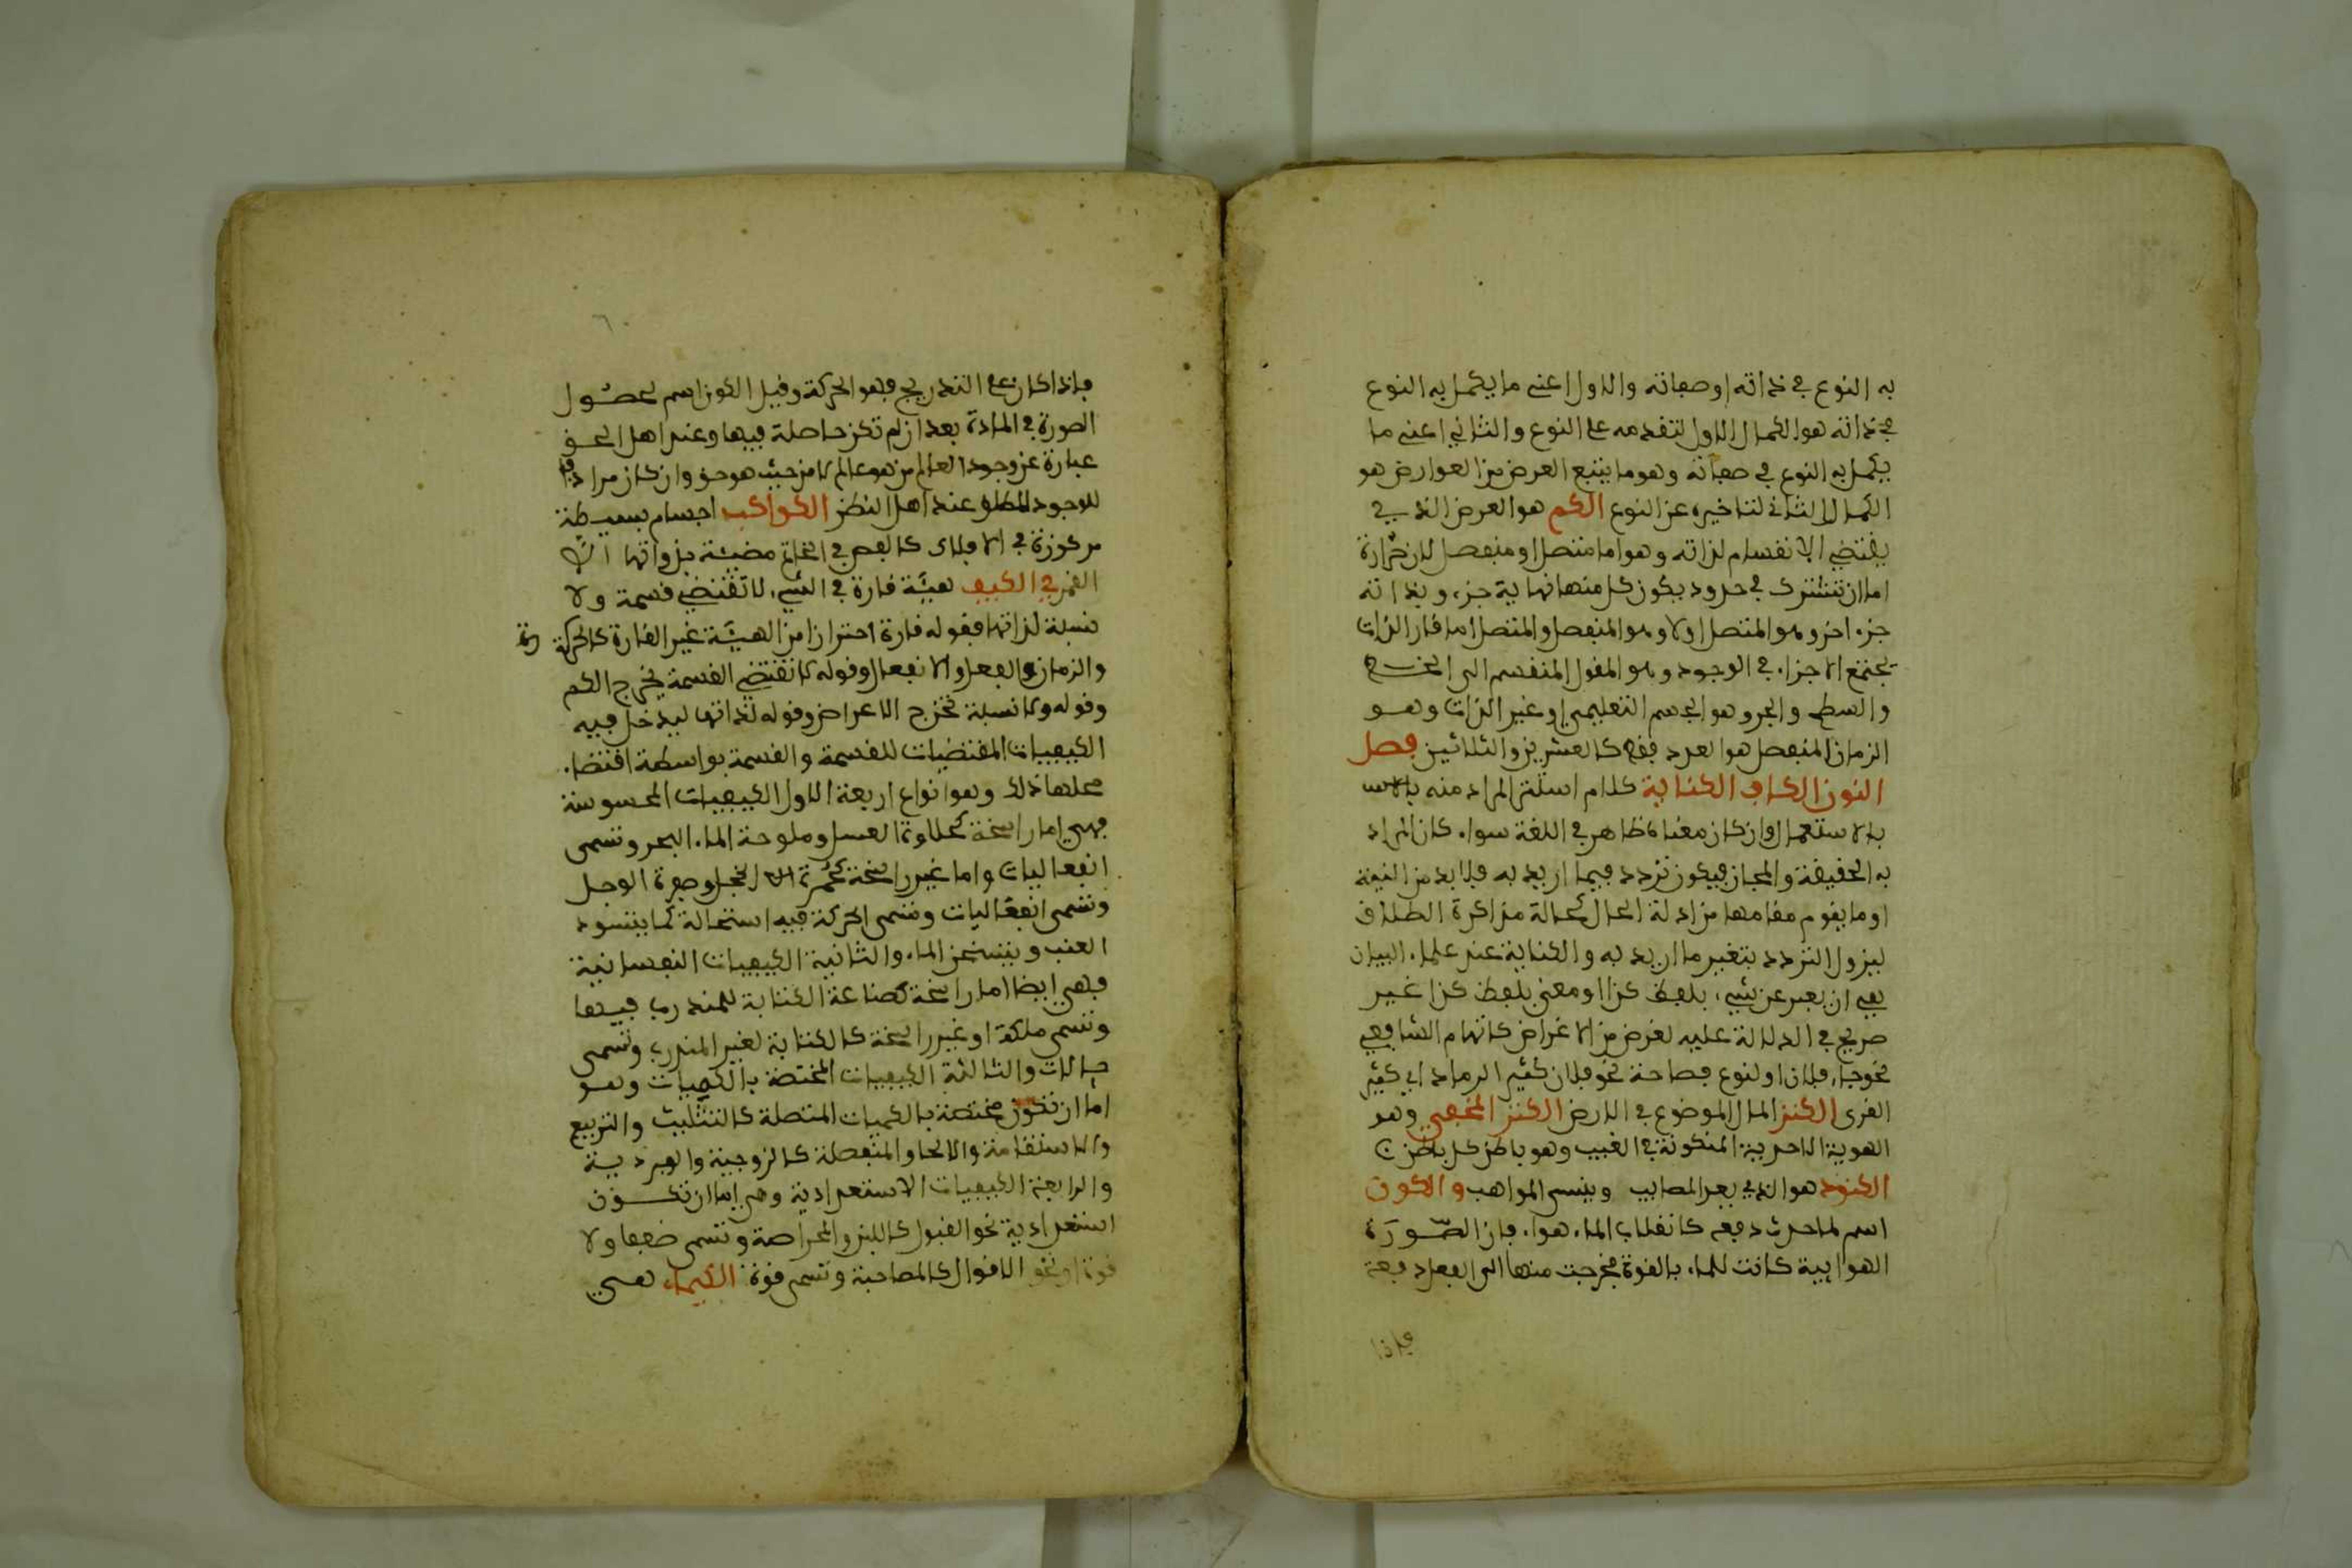 به النوع في ذاته او صفاته والاول اعني ما يكمل به النوع
في ذاته هو الكمال الاول لتقدمه على النوع والثاني اعني ما
يكمل به النوع في صفاته وهو ما يتبع العرض من العوارض هو
الكمال الثاني لتاخيره عن النوع الكم هو العرض الذي
يقتضي الانقسام لذاته وهو اما متصل او منفصل لان
اما ان تشترك في حدود يكون كل منها نهاية جزء وبداته
جزء اخر وهو المتصل اولا وهو المنفصل والمتصل اما قار الذات
يجتمع الاجزاء في الوجود وهو المقول المنقسم الى الخط
والسطح والجر وهو الجسم التعليمي او غير الذات وهو
الزمان المنفصل هو العدد فقط كالعشرين والثلاثين فصل
النون الكاف الكناية كلام استتر المراد منه
بالاستعمال وان كان معناه ظاهر في اللغة سواء كان المراد
به الحقيقة والمجاز فيكون تردد فيما اريد به فلا بد من النية
او ما يقوم مقامها من ادلة الحال كحالة مذاكرة الطلاق
ليزول التردد بتغير ما اريد به والكناية عند علماء البيان
هي ان يعبر عن شيء بلفظ كذا او معنى بلفظ كذا غير
صريح في الدلالة عليه لغرض من الاغراض كابهام الشافعي
نحو جاء فلان او لنوع فصاحة نحو فلان كثير الرماد اي كثير
القرى الكنز المال الموضوع في الارض الكنز المخفي وهو
الهوية الاحدية المنكونة في الغيب وهو باطن كل باطن
الكنود هو الذي يعد المصايب وينسى المواهب والكون
اسم لما حدث دفعة كانقلاب الماء هواء فان الصورة
الهوايية كانت للماء بالقوة فخرجت منها الى الفعل دفعة
فاذا
٦٠
فاذا كان على التدريج فهو الحركة وقيل الكون اسم لحصول
الصورة في المادة بعد ان لم تكن حاصلة فيها وعند اهل الحق
عبارة عن وجود العالم من هو عالم لا من حيث هو حق وان كان مرادفا
للوجود المطلق عند اهل النظر الكواكب اجسام بسيطة
مركوزة في الافلاك كالفص في الخاتم مضيئة بذواتها الا
القمر في الكيف هيئة قارة في الشيء لا تقتضي قسمة ولا
نسبة لذاتها فقوله قارة احترازا من الهيئة غير القارة كالحركة
والزمان والفعل والانفعال وقوله لا تقتضي القسمة يخرج الكم
وقوله ولا نسبة تخرج الاعراض وقوله لذاتها ليدخل فيه
الكيفيات المقتضيات للقسمة والقسمة بواسطة اقتضاء
محلها ذلك وهو انواع اربعة الاول الكيفيات المحسوسة
فهي اما راسخة كحلاوة العسل وملوحة الماء البحر وتسمى
انفعاليات واما غير راسخة كحمرة الخجل وصفرة الوجل
وتسمى انفعاليات وتسمى الحركة فيه استحالة كما يتسود
العنب ويتسخن الماء والثانية الكيفيات النفسانية
فهي ايضا اما راسخة كصناعة الكتابة للمتدرب فيها
وتسمى ملكة او غير راسخة كالكتابة لغير المتدرب وتسمى
حالات والثالثة الكيفيات المختصة بالكميات وهو
اما ان تكون مختصة بالكميات المتصلة كالتثليث والتربيع
والاستقامة والانحاء والمنفصلة كالزوجية والفردية
والرابعة الكيفيات الاستعدادية وهي اما ان تكون
استعدادية نحو القبول كاللين والمراضة وتسمى ضعفا ولا
قوة او نحو الاقوال كالمصاحبة وتسمى قوة الكيمياء هي